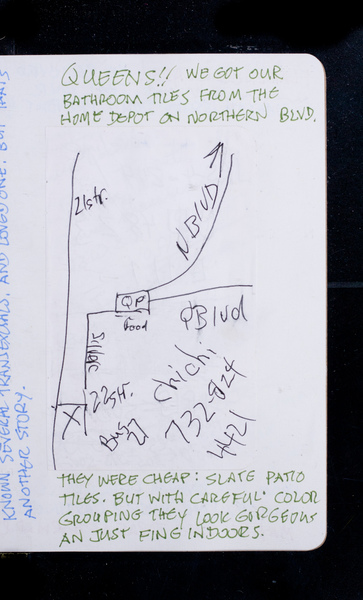 QUEENS!! WE GOT OUR
BATHROOM TILES FROM THE
HOME DEPOT ON NORTHERN BLVD.
21str.
N BLVD
QP
food
QBlvd
22str.
X
Bus
Chichi
732-824
4421
THEY WERE CHEAP: SLATE PATIO
TILES. BUT WITH CAREFUL COLOR
GROUPING THEY LOOK GORGEOUS
AN JUST FING INDOORS.
KNOWN SEVERAL TRANSEXUALS. AND LOVED ONE. BUT THATS
ANOTHER STORY.